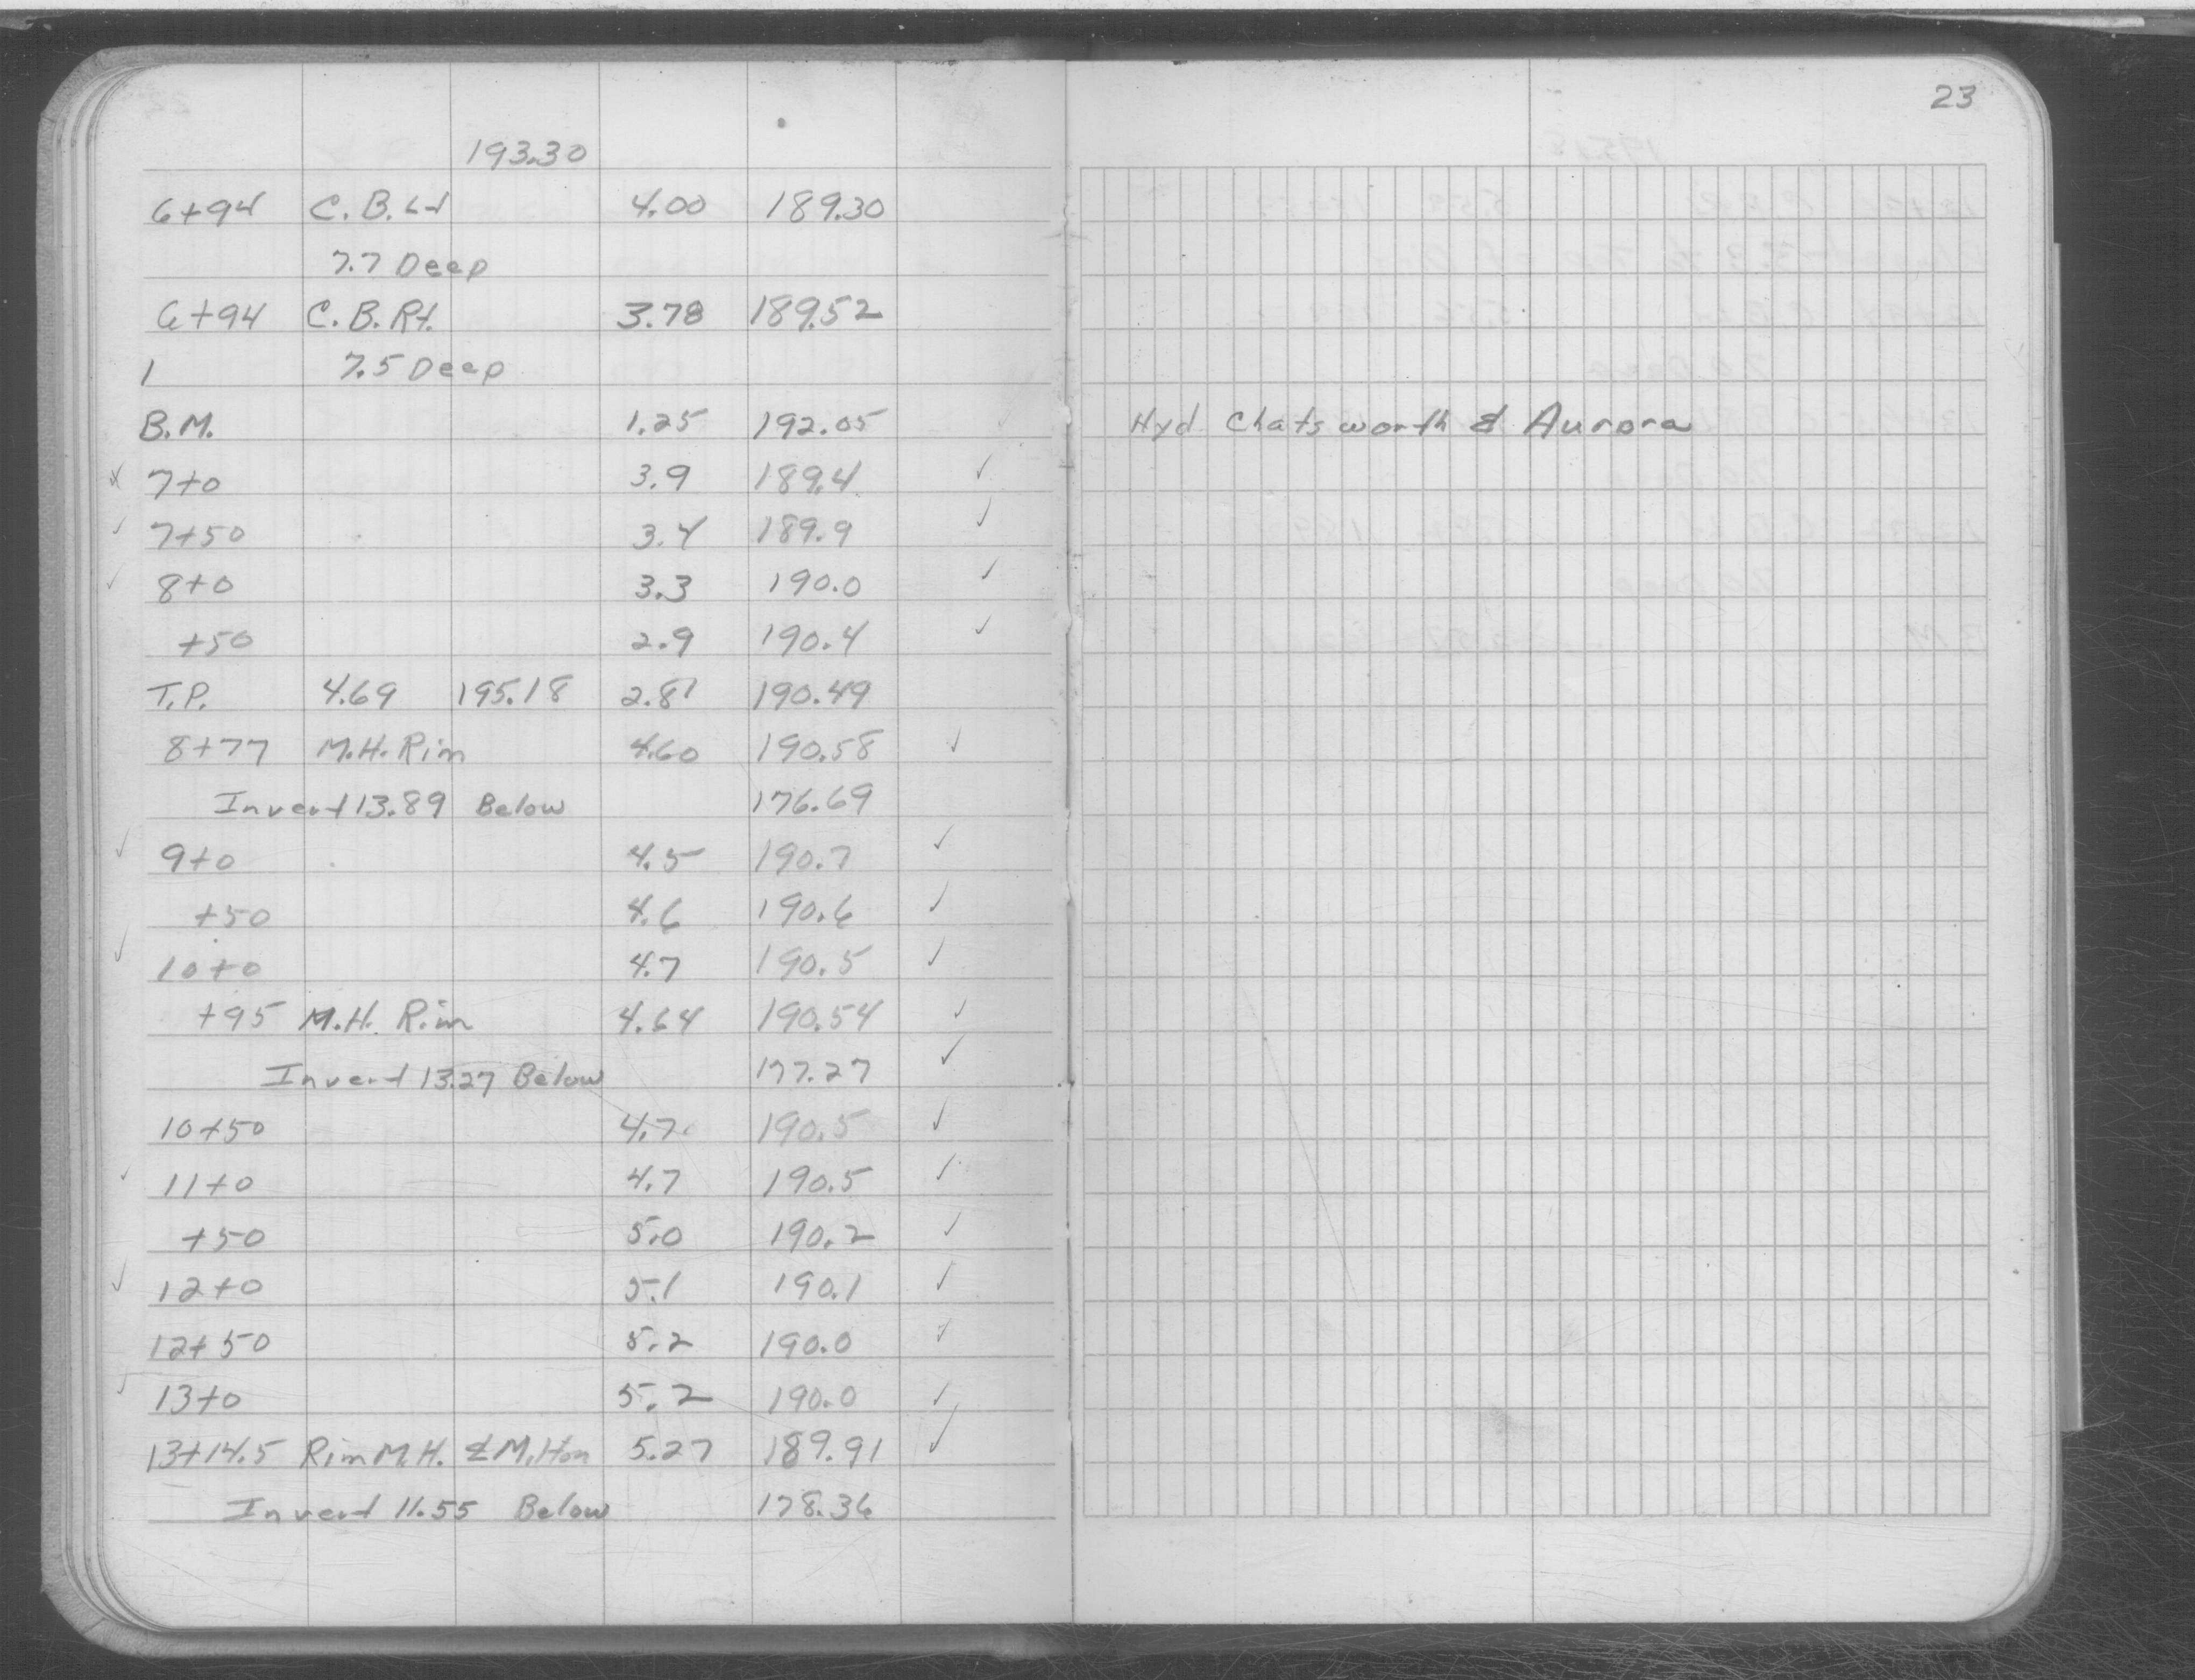 193.30
6+94 C.B. Lt 4.00 189.30
7.7 Deep
6+94 C.B. Rt. 3.78 189.52
1 7.5 Deep
B.M. 1.25 192.05
7+0 3.9 189.4 ✓
✓ 7+50 3.4 189.9 ✓
✓ 8+0 3.3 190.0 ✓
+50 2.9 190.4 ✓
T.P. 4.69 195.18 2.81 190.49
8+77 M.H. Rim 4.60 190.58 ✓
Invert 13.89 Below 176.69
✓ 9+0 4.5 190.7 ✓
+50 4.6 190.6 ✓
✓ 10+0 4.7 190.5 ✓
+95 M.H. Rim 4.64 190.54 ✓
Invert 13.27 Below 177.27 ✓
10+50 4.7 190.5 ✓
✓ 11+0 4.7 190.5 ✓
+50 5.0 190.2 ✓
✓ 12+0 5.1 190.1 ✓
12+50 5.2 190.0 ✓
✓ 13+0 5.2 190.0 ✓
13+14.5 Rim M.H. 5.27 189.91 ✓
Invert 11.55 Below 178.36
23
Hyd Chatsworth & Aurora